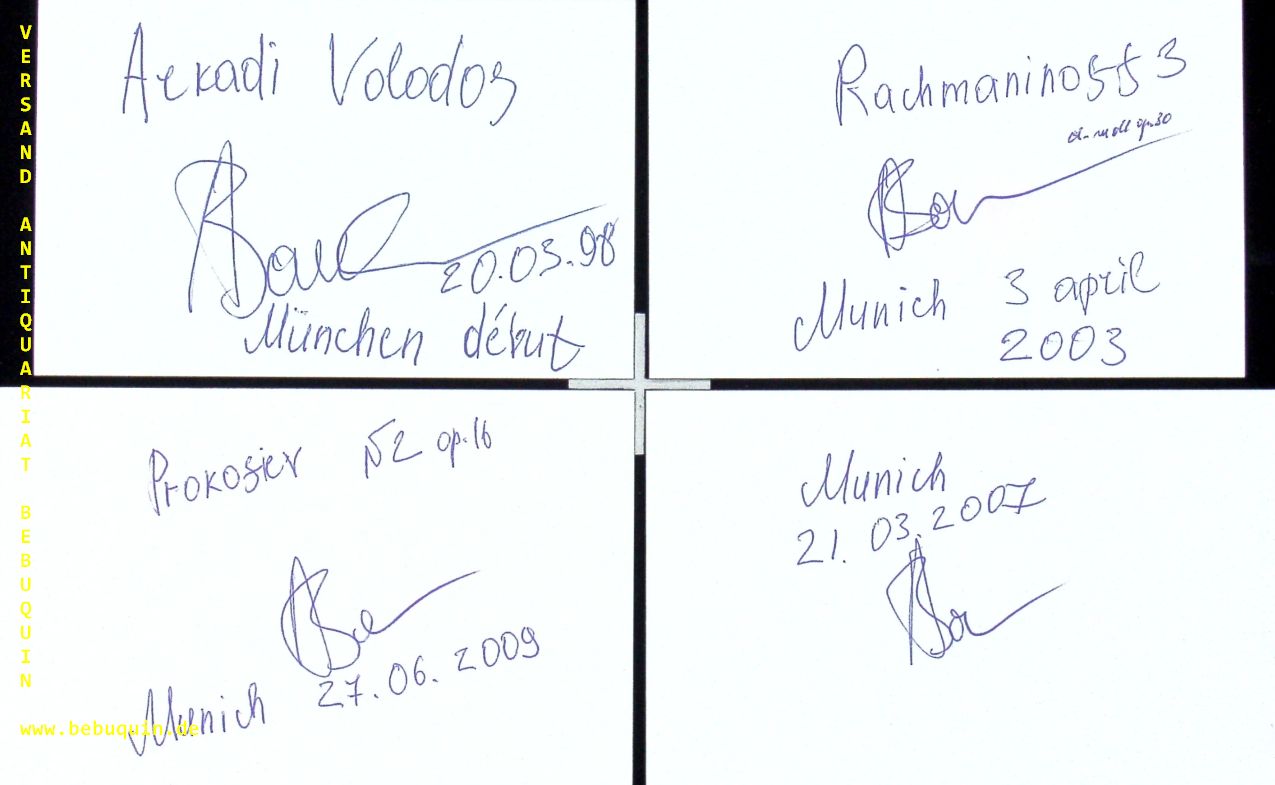 VERSAND ANTIQUARIAT BEBUQUIN
www.bebuquin.de
Arkadi Volodos
20.03.98
München début
Rachmaninoff 3
d-moll op.30
Munich 3 april
2003
Prokofiev N2 op.16
Munich 27.06.2009
Munich
21.03.2007